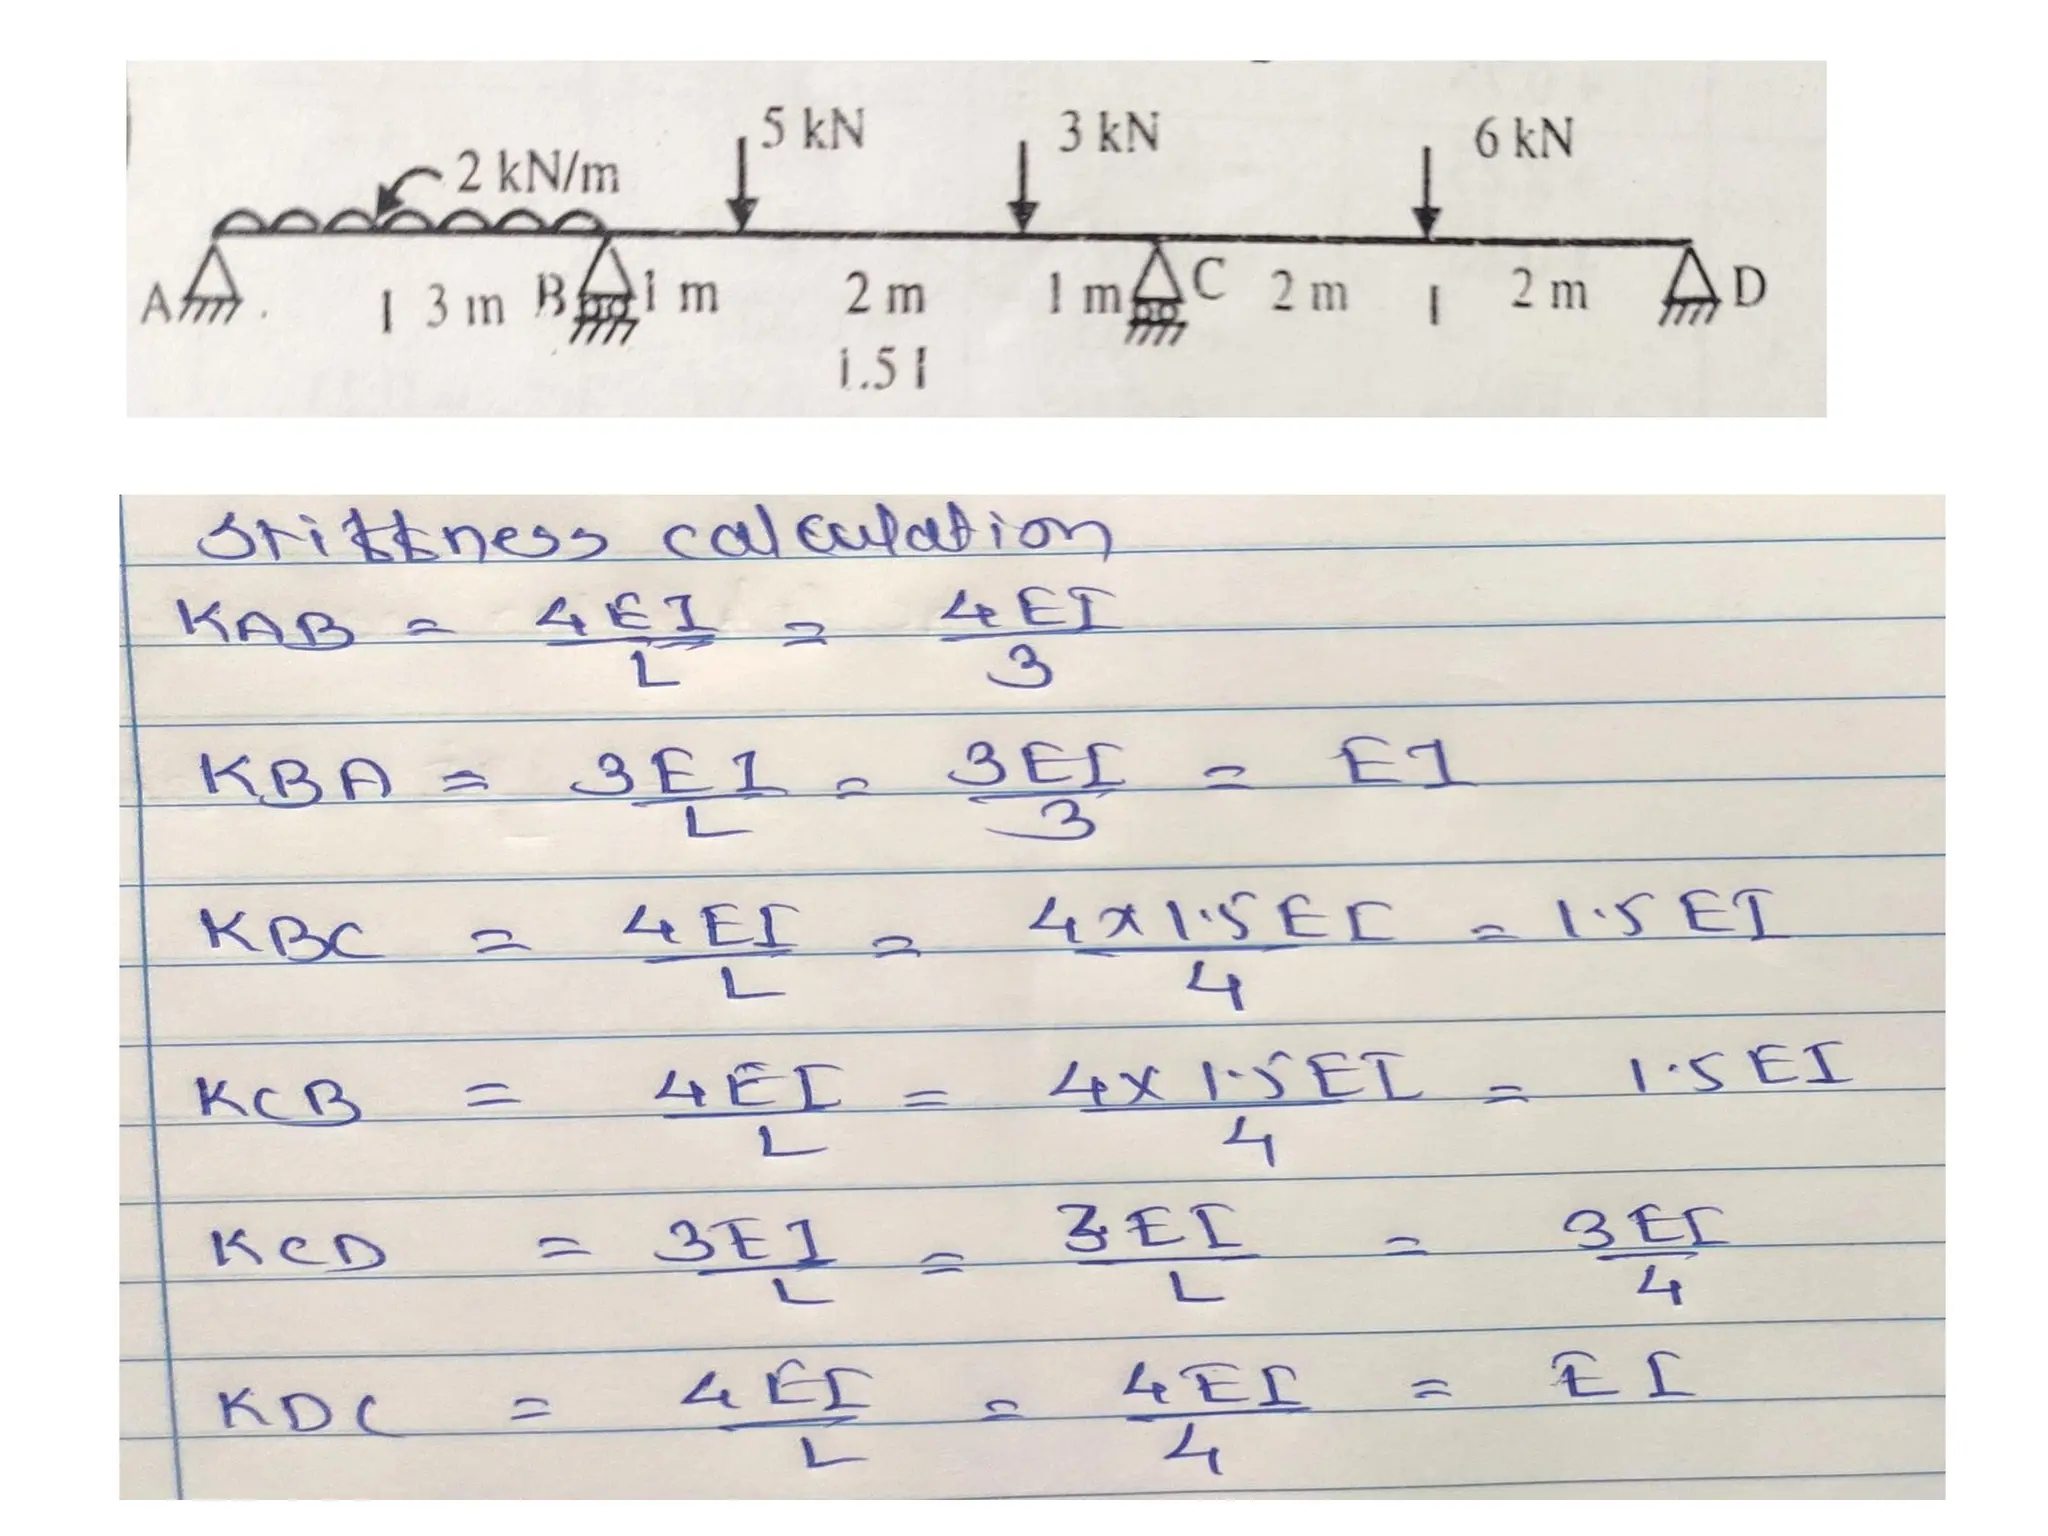 5 kN 3 kN 6 kN
2 kN/m
A I 3 m B 1 m 2 m 1 m C 2 m I 2 m D
1.5 I
Stiffness calculation
KAB = 4EI/L = 4EI/3
KBA = 3EI/L = 3EI/3 = EI
KBC = 4EI/L = 4x1.5EI/4 = 1.5EI
KCB = 4EI/L = 4x1.5EI/4 = 1.5EI
KCD = 3EI/L = 3EI/L = 3EI/4
KDC = 4EI/L = 4EI/4 = EI